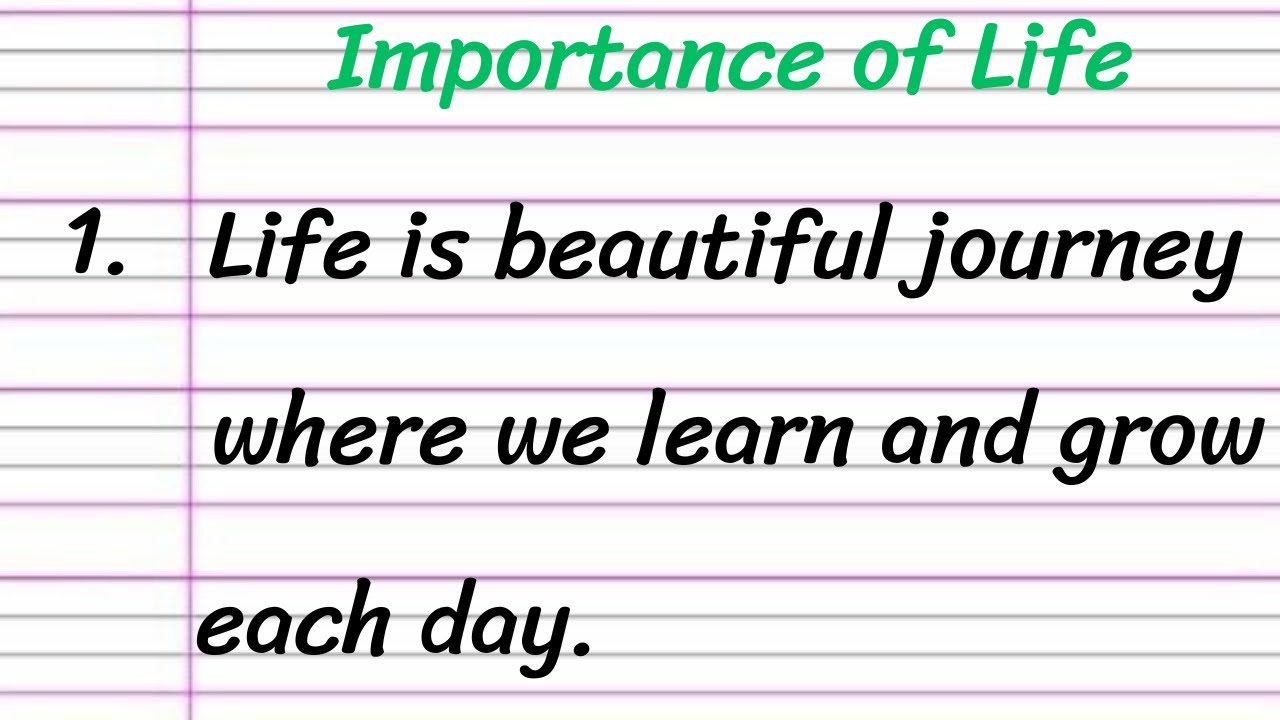 Importance of Life
1. Life is beautiful journey
where we learn and grow
each day.